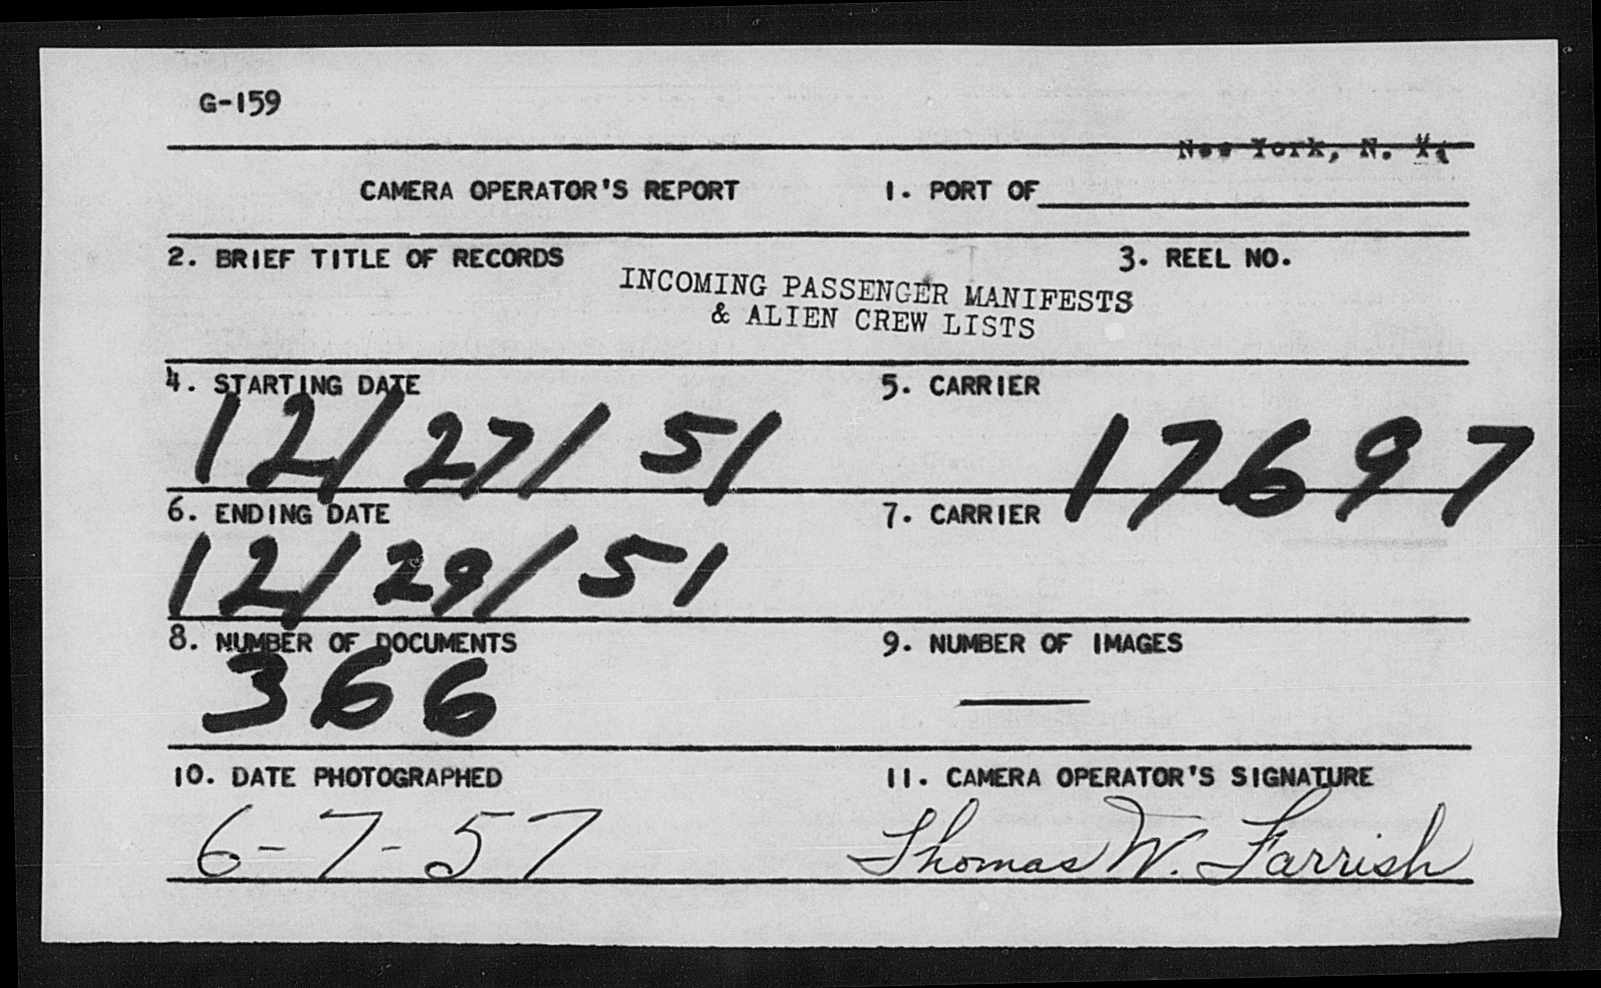 G-159
New York, N. Y.
CAMERA OPERATOR'S REPORT 1. PORT OF
2. BRIEF TITLE OF RECORDS 3. REEL NO.
INCOMING PASSENGER MANIFESTS
& ALIEN CREW LISTS
4. STARTING DATE 5. CARRIER
12/27/51 17697
6. ENDING DATE 7. CARRIER
12/29/51
8. NUMBER OF DOCUMENTS 9. NUMBER OF IMAGES
366 —
10. DATE PHOTOGRAPHED 11. CAMERA OPERATOR'S SIGNATURE
6-7-57 Thomas W. Farrish